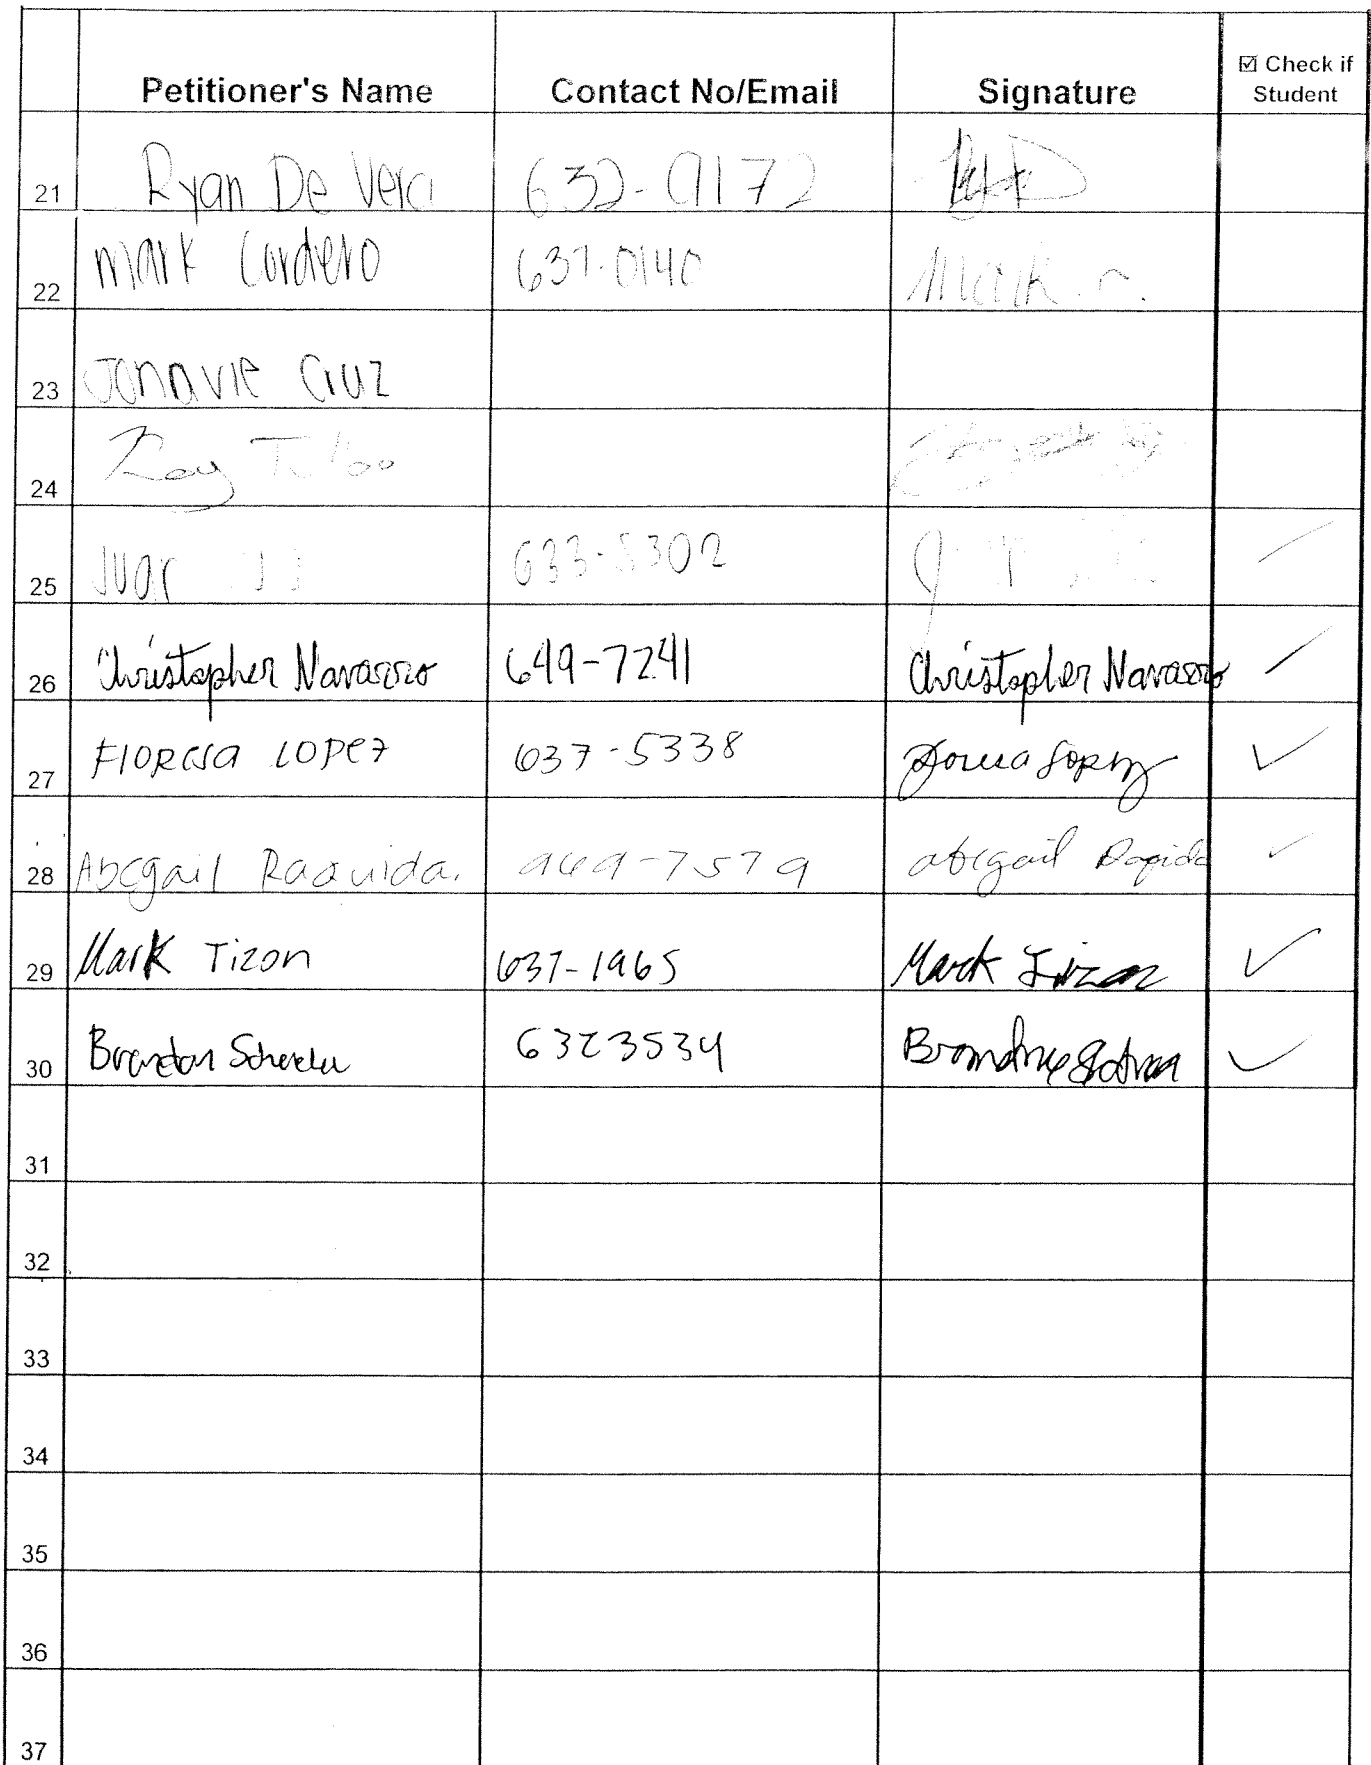 Petitioner's Name Contact No/Email Signature ☑ Check if
Student
21 Ryan De Vera 632-9172
22 Mark Cordero 637-0140 Mark
23 Jonavie Cruz
24 Ray
25 633-5302
26 Christopher Navarro 649-7241 Christopher Navarro
27 Floresa Lopez 637-5338 Lopez ✓
28 Abegail Raquida. 969-7579 abegail ✓
29 Mark Tizon 637-1965 Mark Tizon ✓
30 Brandon 6323534 ✓
31
32
33
34
35
36
37